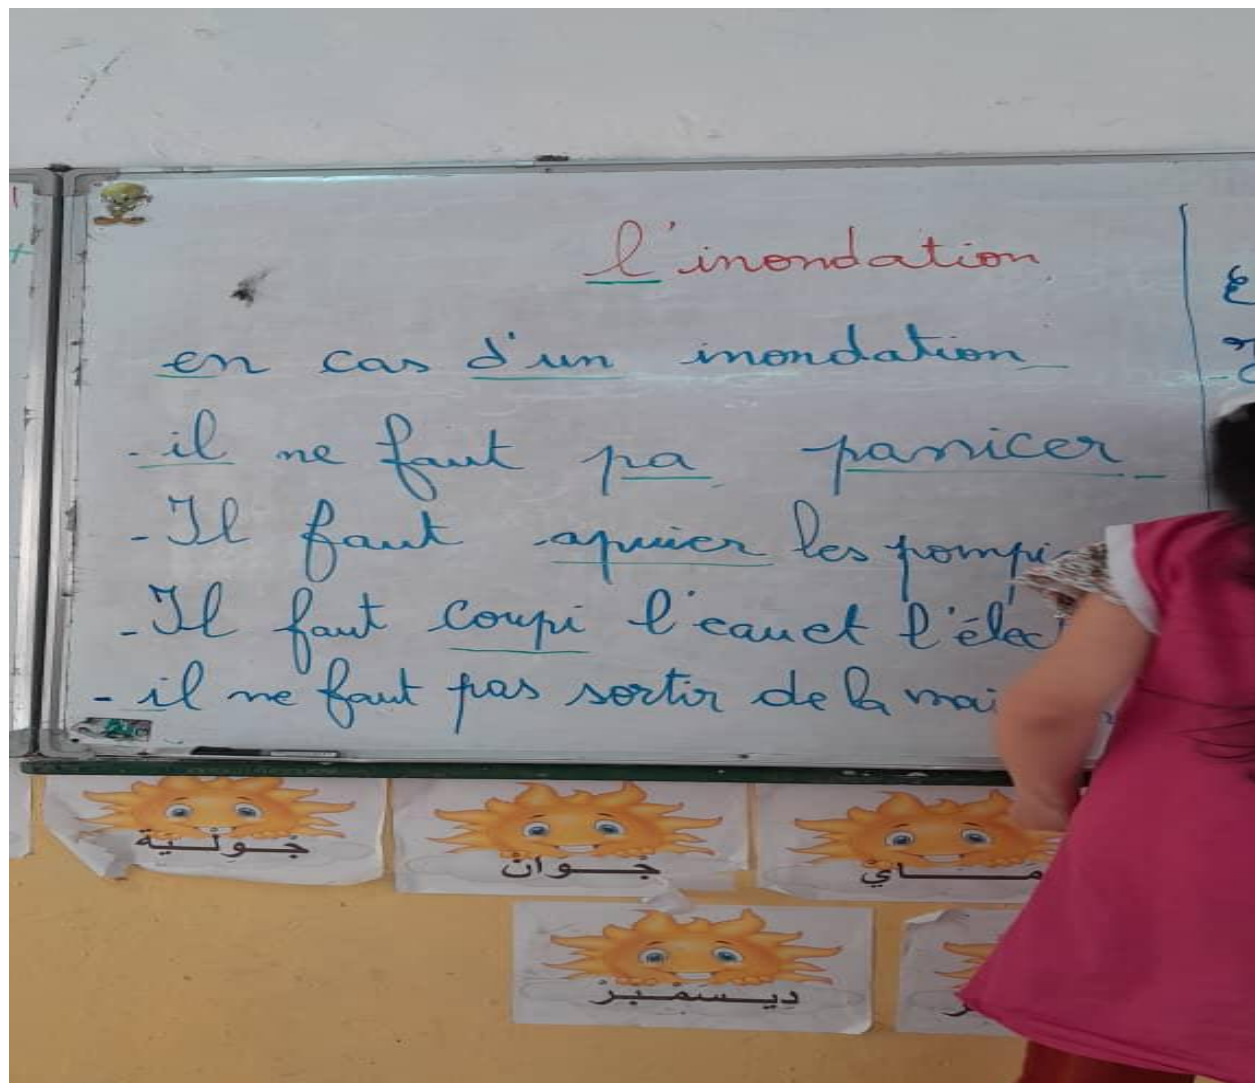 l'inondation
en cas d'un inondation
- il ne faut pa panicer
- Il faut apuier les pompi
- Il faut coupi l'eau et l'élec
- il ne faut pas sortir de la mai
جـويـلـيـة
جـــوان
مـــاي
ديـسـمـبـر